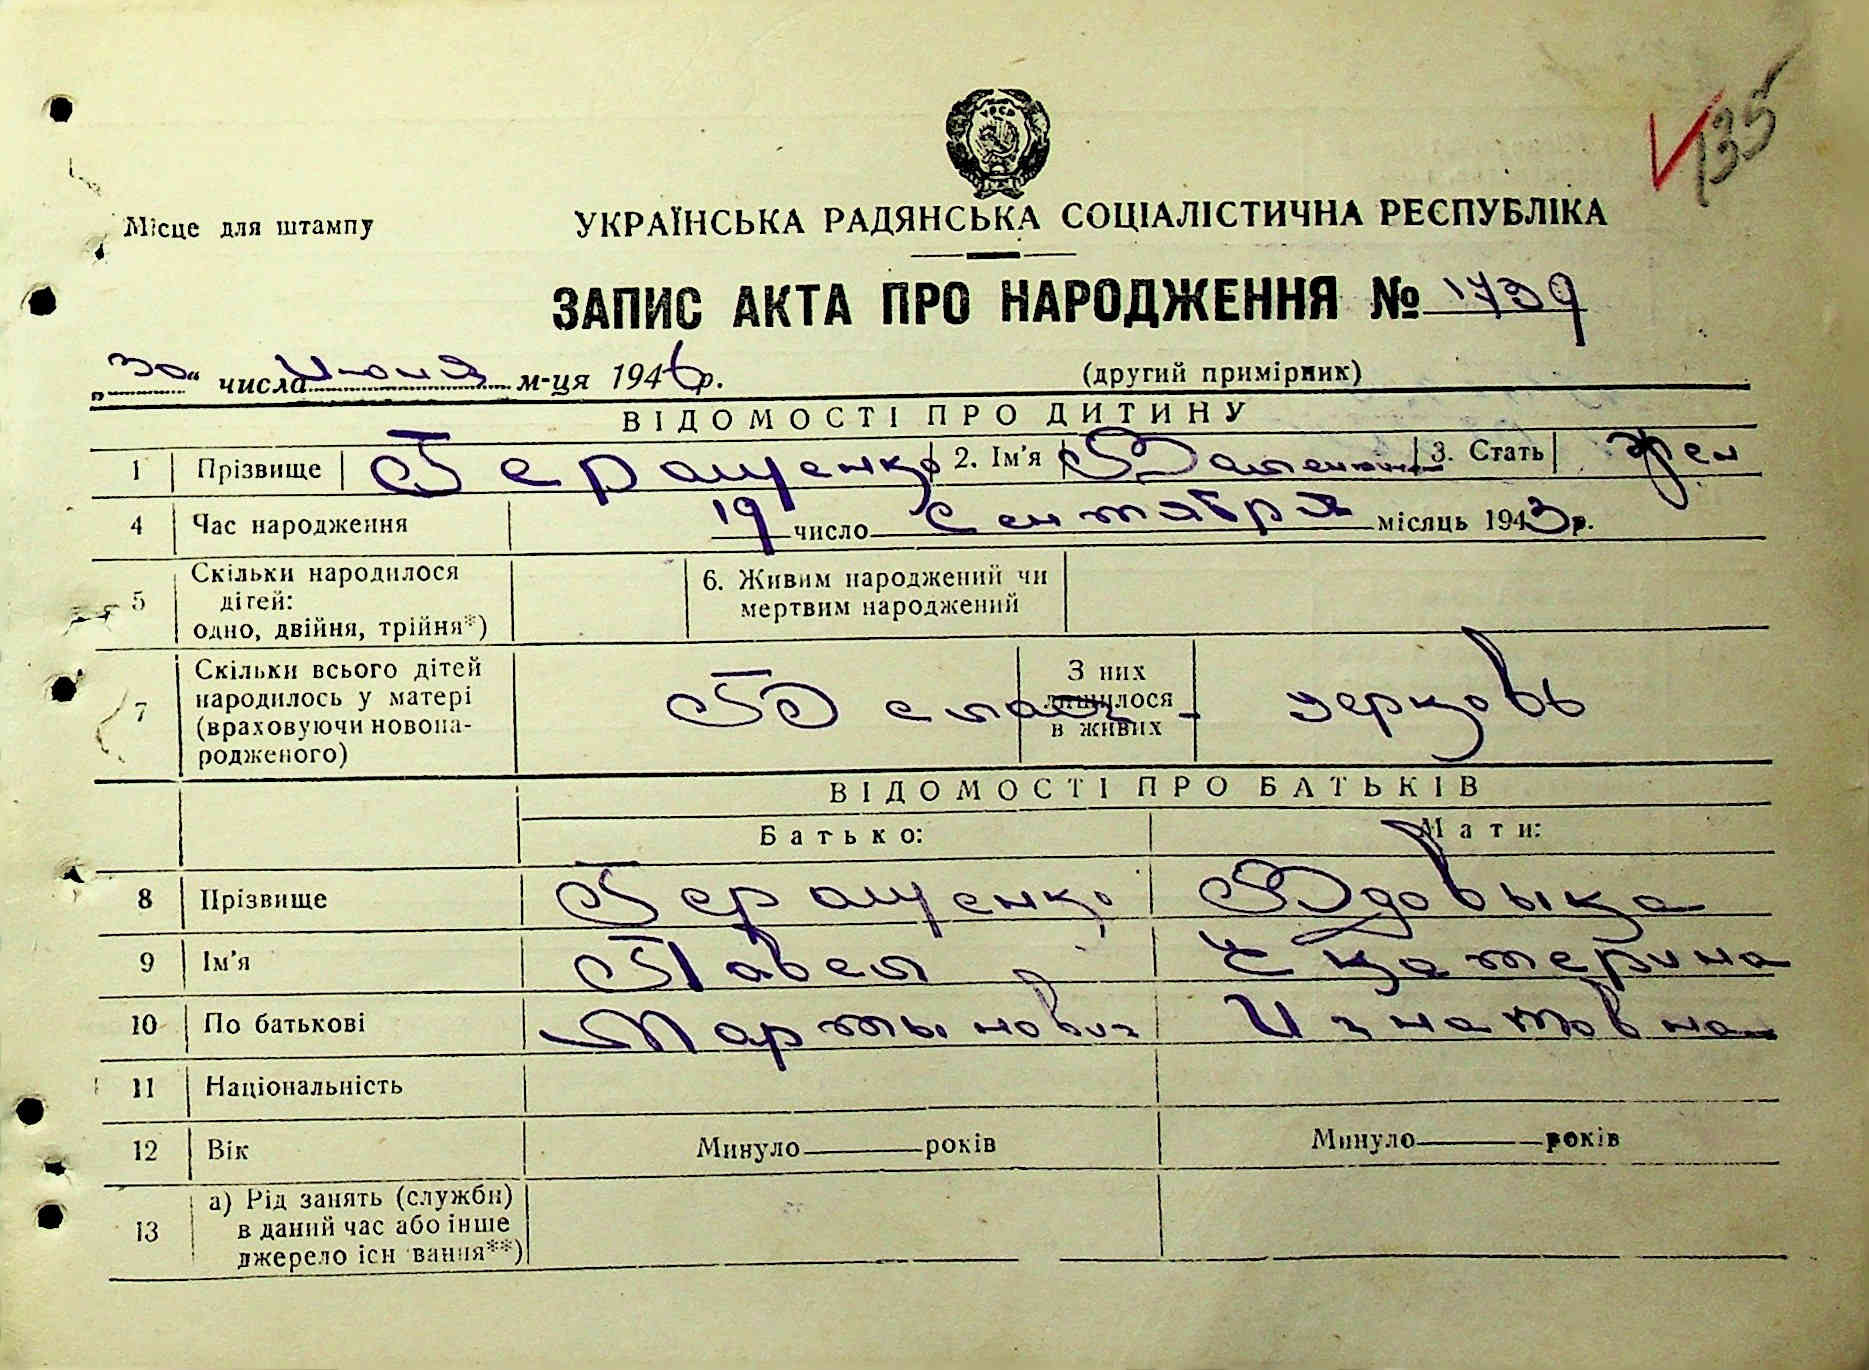 135
Місце для штампу
УКРАЇНСЬКА РАДЯНСЬКА СОЦІАЛІСТИЧНА РЕСПУБЛІКА
ЗАПИС АКТА ПРО НАРОДЖЕННЯ № 1739
„30“ числа июня м-ця 1946 р. (другий примірник)
ВІДОМОСТІ ПРО ДИТИНУ
1 Прізвище Геращенко 2. Ім'я Валентина 3. Стать жен
4 Час народження 19 число Сентября місяць 1943 р.
5 Скільки народилося дітей: одно, двійня, трійня*) 6. Живим народжений чи мертвим народжений
7 Скільки всього дітей народилось у матері (враховуючи новонародженого) Белая - З них лишилося в живих церковь
ВІДОМОСТІ ПРО БАТЬКІВ
Батько: Мати:
8 Прізвище Геращенко Вдовыка
9 Ім'я Павел Екатерина
10 По батькові Мартынович Игнатовна
11 Національність
12 Вік Минуло років Минуло років
13 а) Рід занять (служби) в даний час або інше джерело існ вання**)